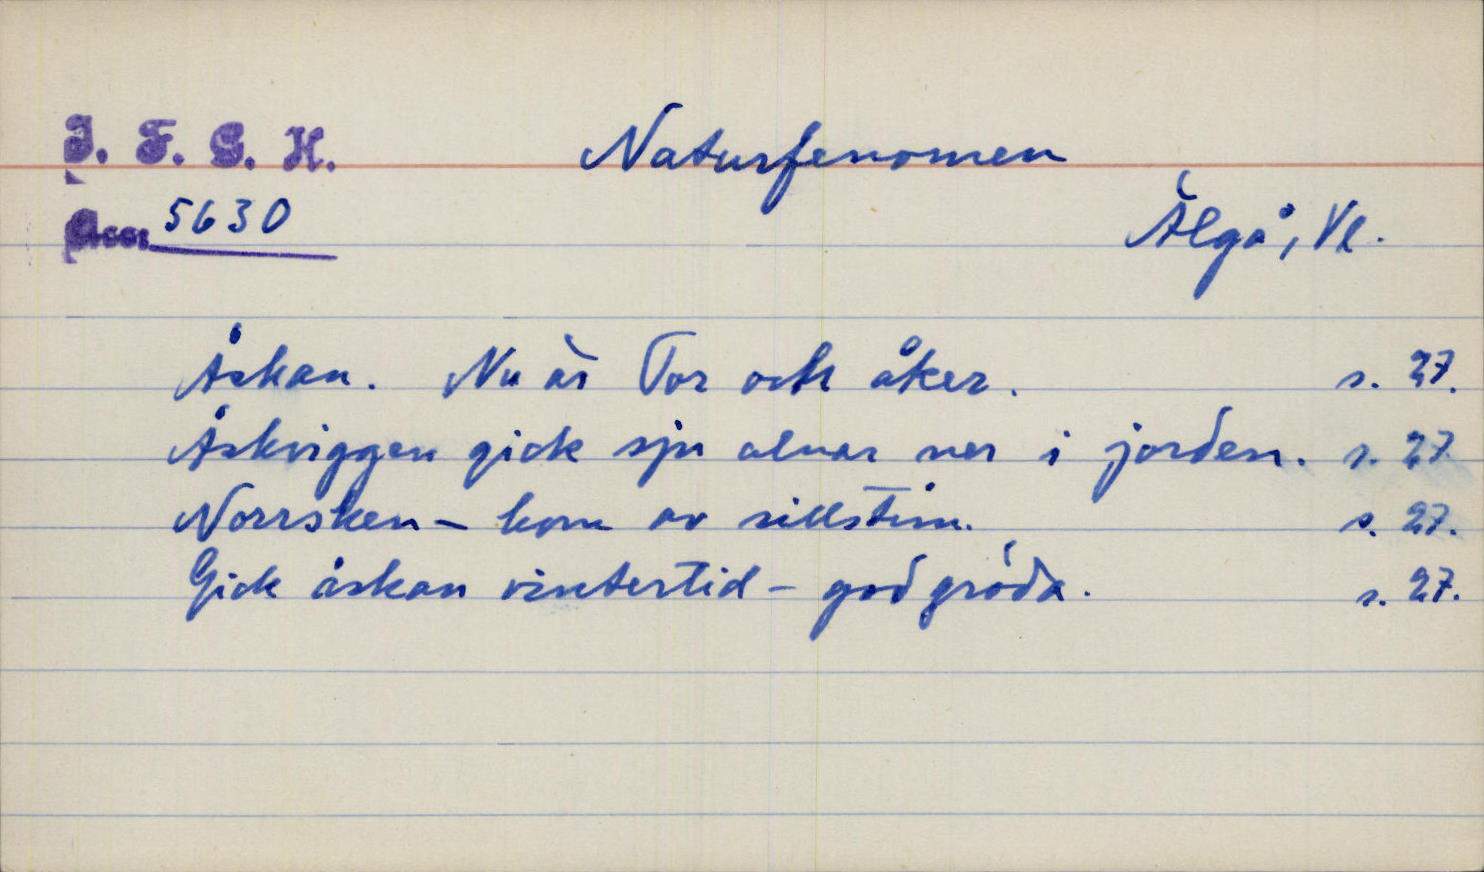 I. F. G. H. Naturfenomen
Acc. 5630 Älgå, Vl.
Åskan. Nu är Tor och åker. s. 27.
Åskviggen gick sju alnar ner i jorden. s. 27
Norrsken - kom av sillstim. s. 27.
Gick åskan vintertid - god gröda. s. 27.